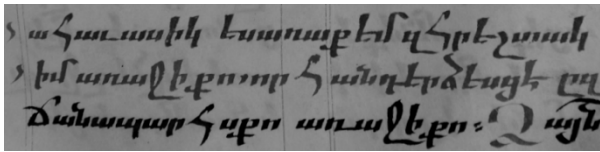 ահաւասիկ ես առաքեմ զհրեշտակ
իմ առաջի քո· որ հանդերձեսցէ ըզ
ճանապարհ քո առաջի քո։ Ձայն